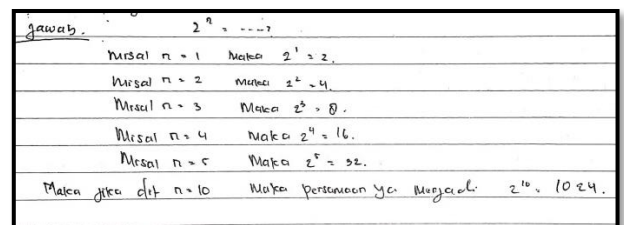 Jawab. 2ⁿ = ....?
Misal n = 1 Maka 2¹ = 2.
Misal n = 2 Maka 2² = 4.
Misal n = 3 Maka 2³ = 8.
Misal n = 4 Maka 2⁴ = 16.
Misal n = 5 Maka 2⁵ = 32.
Maka jika dit n = 10 Maka persamaan ya Menjadi 2¹⁰ = 1024.